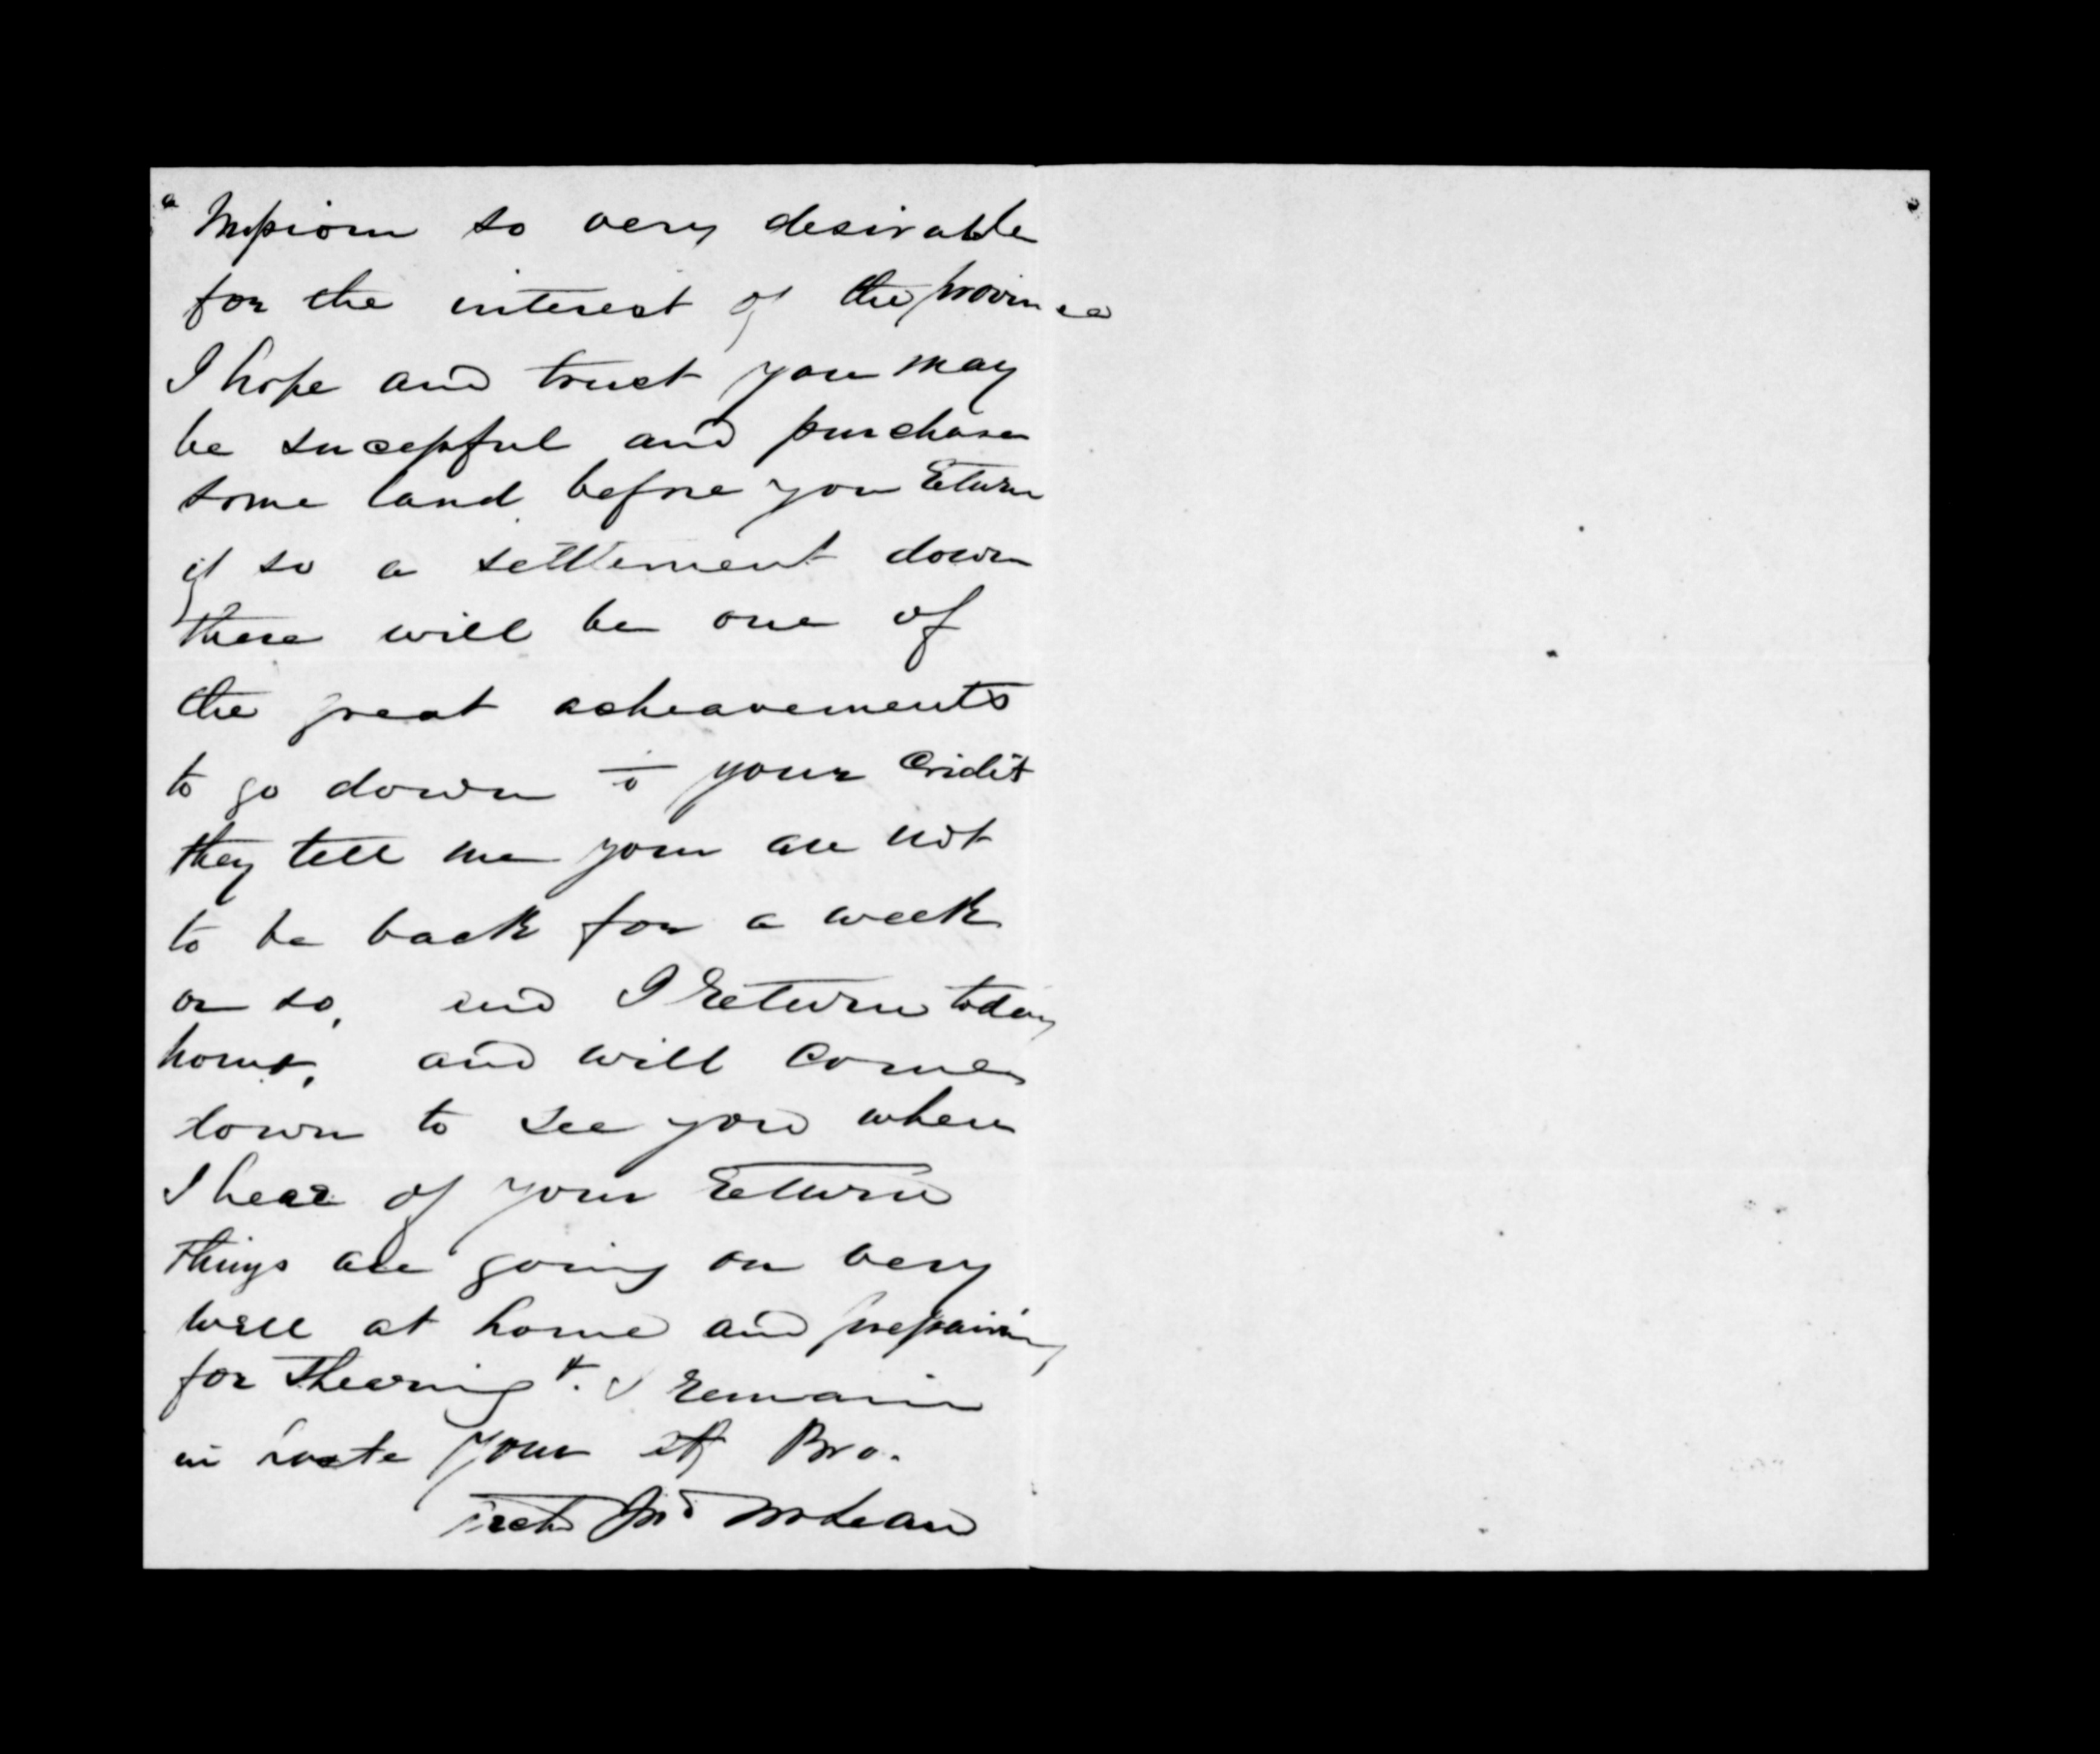 a Mission so very desirable
for the interest of the province
I hope and trust you may
be sucessful and purchase
some land before you return
if so a settlement down
there will be one of
the great acheavements
to go down to your credit
they tell me your are not
to be back for a week
or so, and I return today
home, and will come
down to see you when
I hear of your return
things are going on very
well at home and prepairing
for Shearing &. I remain
in haste your aff Bro.
Arch Jno McLean